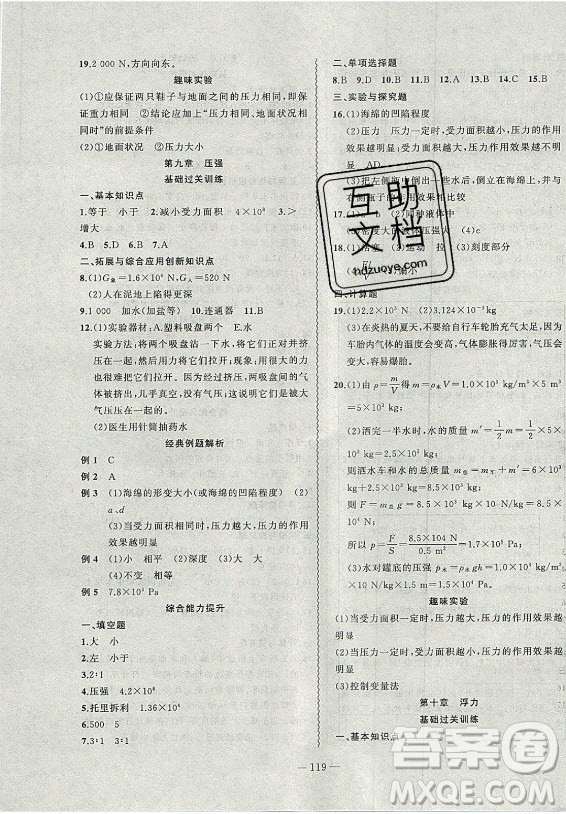 19.2 000 N,方向向东。
趣味实验
(1)①应保证两只鞋子与地面之间的压力相同,即保
证重力相同 ②结论应加上“压力大小相同、地面状况相
同时”的前提条件
(2)①地面状况 ②压力大小
第九章 压强
基础过关训练
一、基本知识点
1.等于 小于 2.减小受力面积 4×10⁶ 3.>
增大
4.B 5.D 6.B 7.A
二、拓展与综合应用创新知识点
8.(1)G人=1.6×10⁴ N,G人=520 N
(2)人在泥地上陷得更深
9.1 000 加水(加盐等) 10.连通器 11.B
12.(1)实验器材:A.塑料吸盘两个 E.水
实验方法:将两个吸盘沾一下水,将它们正对挤压
到一块,然后用力将它们拉开,发现需要用很大的
力才能将它们拉开。两吸盘对接挤压后,它里面的
气体被挤出,几乎真空,没有大气压或气压很小,大
气压压在一起
(2)医生用针筒抽药水
经典例题解析
例1 C
例2 A
例3 (1)海绵的形变大小(或海绵的凹陷程度) (2)
a、d
(3)当受力面积相同时,压力越大,压力的作用
效果越明显
例4 (1)小 相平 (2)深度 (3)大 大
(4)不变 相等
例5 7.8×10³ Pa
综合能力提升
一、填空题
1.大 小
2.左 小于
3.2∶1
4.压强 4.2×10⁶
5.托里拆利 1.36×10⁴
6.500 5
7.3∶1 3∶1
二、单项选择题
8.B 9.D 10.B 11.B 12.A 13.C 14.C 15.B
三、实验与探究题
16.(1)海绵的凹陷程度
(2)B 压力一定时,受力面积越小,压力的作用
效果越明显 AD
(3)把左侧瓶中倒出一些水后,放回海绵上,再
与右侧瓶子的压力效果相比较
17.(1) (2)同种液体中
(3)密度大 液体压强大 (4)c
18.(1)活塞 (2)运动 拉 (3)刻度部分
偏小
四、计算题
19.(1)2×10⁵ (2)3.124×10⁻²
(3)在炎热的夏天,不要给自行车轮胎充气太足,因为
车胎内气体的温度会变高,气体会膨胀,压强会变大。
20.(1)由ρ=m/V 得 m=ρ水V=1.0×10³ kg/m³×5
m³=5×10³ kg
(2)洒完一半水时,水的质量 m′=1/2 m=1/2×5×10³
kg=2.5×10³ kg
则洒水车和水的总质量 m总=m车+m′=6×10³
kg+2.5×10³ kg=8.5×10³ kg
则 F=G总=m总g=8.5×10³ kg×10 N/kg=8.5×
10⁴ N
所以 p=F/S=8.5×10⁴ N/0.5 m²=1.7×10⁵ Pa
(3)水对罐底的压强 p水=ρ水gh=1.0×10³ kg/m³
×10 N/kg×1.5 m=1.5×10⁴ Pa
趣味实验
(1)当受力面积一定时,压力越大,压力的作用效果越
明显
(2)当压力一定时,受力面积越小,压力的作用效果越
明显
(3)控制变量法
第十章 浮力
基础过关训练
一、基本知识点
— 119 —
互助文档
hdzuoye.com
答案圈
MXQE.COM